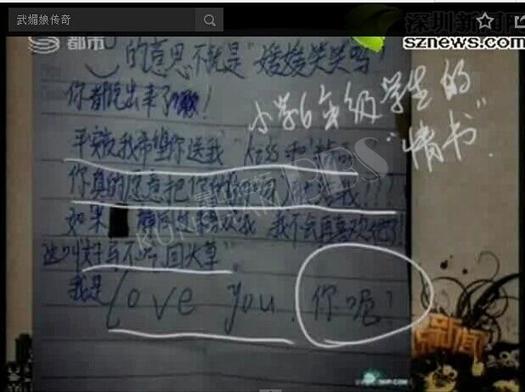 武媚娘传奇
都市
深圳新闻网
sznews.com
的意思不就是“媛媛笑笑吗？
你都说出来了！
小学6年级学生的
“情书”
平安夜我希望你送我“kiss和
你真的愿意把你 给我???
如果 喜欢我 我不会再喜欢他了!
这叫好马不吃回头草”
我是 Love you. 你呢?
PPS
新闻